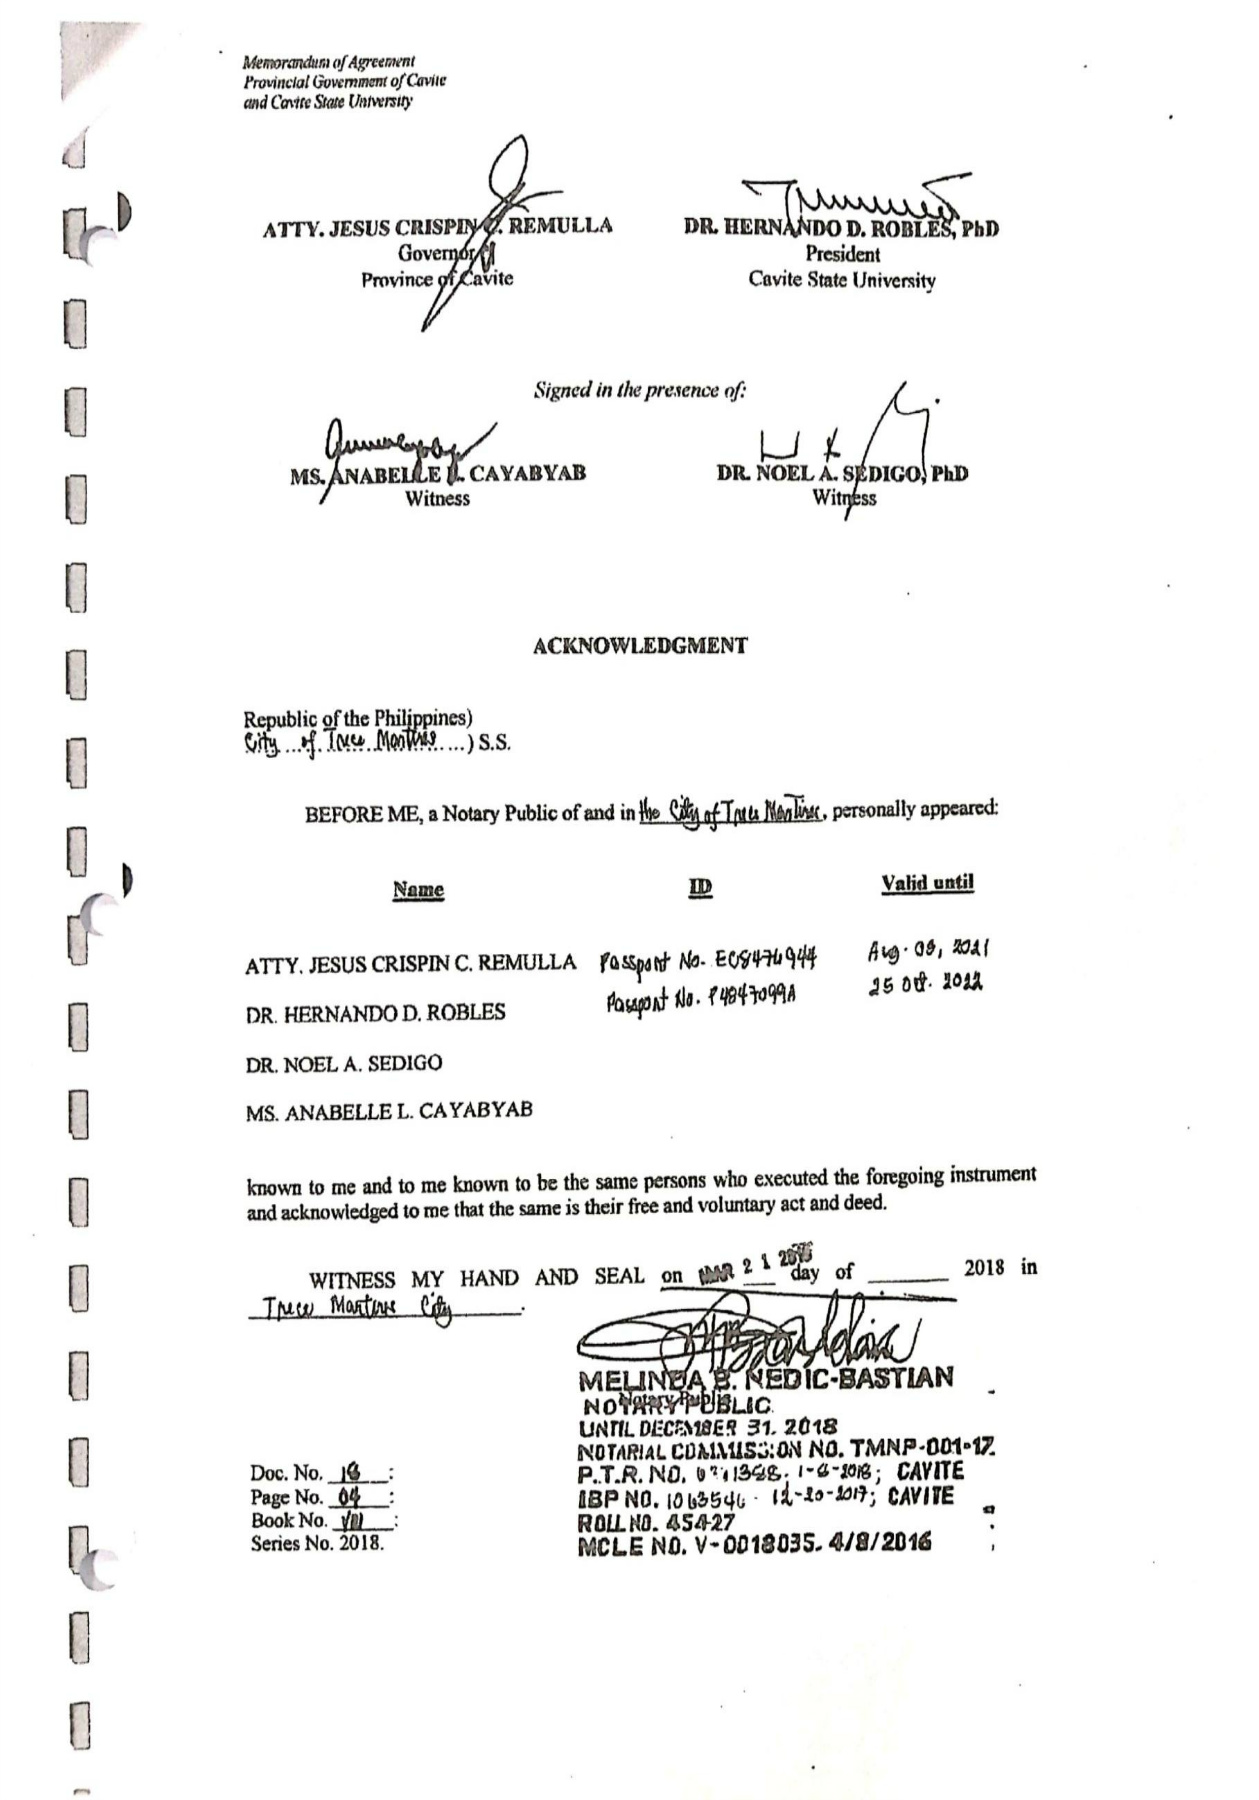 Memorandum of Agreement
Provincial Government of Cavite
and Cavite State University
ATTY. JESUS CRISPIN C. REMULLA DR. HERNANDO D. ROBLES, PhD
Governor President
Province of Cavite Cavite State University
Signed in the presence of:
MS. ANABELLE L. CAYABYAB DR. NOEL A. SEDIGO, PhD
Witness Witness
ACKNOWLEDGMENT
Republic of the Philippines)
City of Trece Martires ) S.S.
BEFORE ME, a Notary Public of and in the City of Trece Martires, personally appeared:
Name ID Valid until
ATTY. JESUS CRISPIN C. REMULLA Passport No. EC8476944 Aug. 03, 2021
DR. HERNANDO D. ROBLES Passport No. P4847099A 25 Oct. 2022
DR. NOEL A. SEDIGO
MS. ANABELLE L. CAYABYAB
known to me and to me known to be the same persons who executed the foregoing instrument
and acknowledged to me that the same is their free and voluntary act and deed.
WITNESS MY HAND AND SEAL on MAR 21 day of 2018 in
Trece Martires City.
MELINDA B. NEDIC-BASTIAN
NOTARY PUBLIC
Notary Public
UNTIL DECEMBER 31. 2018
NOTARIAL COMMISSION NO. TMNP-001-17
P.T.R. NO. 1-6-2018; CAVITE
IBP NO. 1063546 - 12-20-2017; CAVITE
ROLL NO. 45427
MCLE NO. V-0018035. 4/8/2016
Doc. No. :
Page No. 04 :
Book No. VIII :
Series No. 2018.